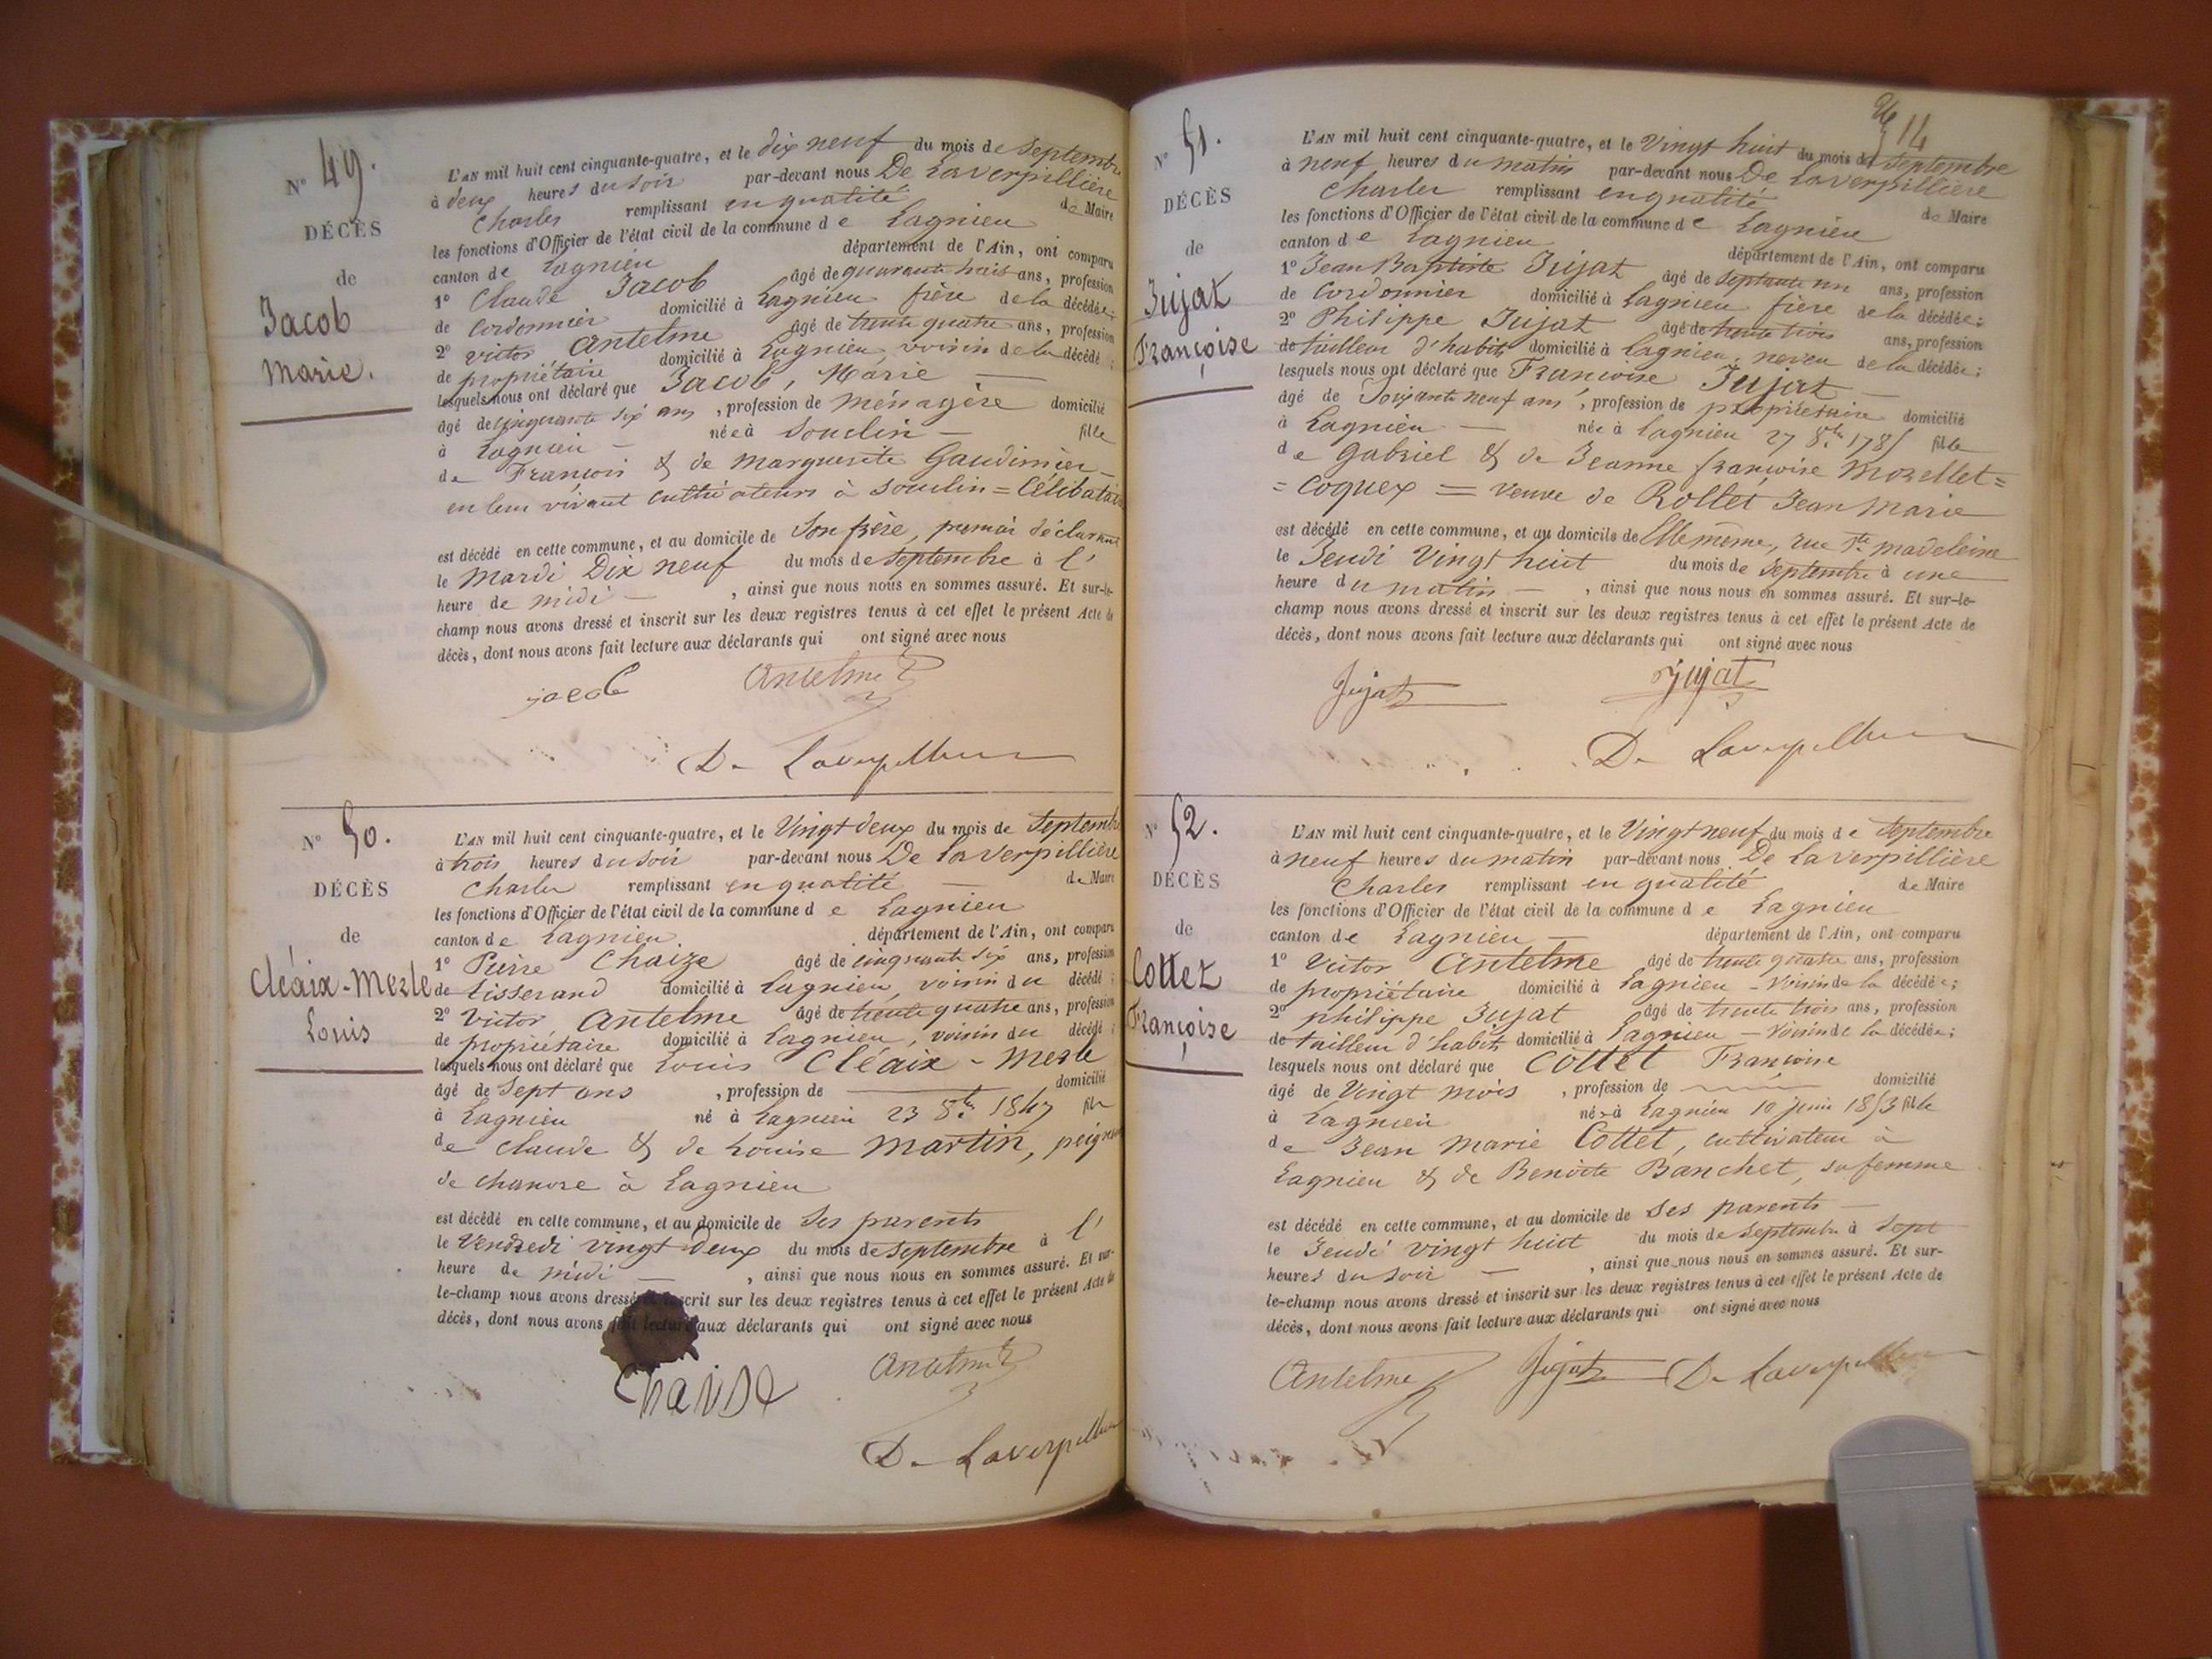 N° 49.
DÉCÈS
de
Jacob
Marie.
L'AN mil huit cent cinquante-quatre, et le dix neuf du mois de Septembre
à deux heures du soir par-devant nous De Laverpillière
Charles remplissant en qualité de Maire
les fonctions d'Officier de l'état civil de la commune de Lagnieu
canton de Lagnieu département de l'Ain, ont comparu
1° Claude Jacob âgé de quarante huit ans, profession
de Cordonnier domicilié à Lagnieu frère de la décédée;
2° Victor Antelme âgé de trente quatre ans, profession
de propriétaire domicilié à Lagnieu, voisin de la décédé;
lesquels nous ont déclaré que Jacob, Marie
âgé de cinquante six ans, profession de Ménagère domicilié
à Lagnieu née à Souclin fille
de François & de Marguerite Gaudinier
en leur vivant cultivateurs à Souclin = Célibataire
est décédé en cette commune, et au domicile de Son frère, premier déclarant
le Mardi Dix neuf du mois de Septembre à l'
heure de midi, ainsi que nous nous en sommes assuré. Et sur-le-
champ nous avons dressé et inscrit sur les deux registres tenus à cet effet le présent Acte de
décès, dont nous avons fait lecture aux déclarants qui ont signé avec nous
jacob Antelme
De Laverpillière
N° 50.
DÉCÈS
de
Cléaix-Merle
Louis
L'AN mil huit cent cinquante-quatre, et le Vingt deux du mois de Septembre
à trois heures du soir par-devant nous De Laverpillière
Charles remplissant en qualité de Maire
les fonctions d'Officier de l'état civil de la commune de Lagnieu
canton de Lagnieu département de l'Ain, ont comparu
1° Pierre Chaize âgé de cinquante six ans, profession
de tisserand domicilié à Lagnieu, voisin du décédé;
2° Victor Antelme âgé de trente quatre ans, profession
de propriétaire domicilié à Lagnieu, voisin du décédé;
lesquels nous ont déclaré que Louis Cléaix-Merle
âgé de Sept ans, profession de domicilié
à Lagnieu né à Lagnieu 23 8bre 1847 fils
de Claude & de Louise Martin, peigneur
de chanvre à Lagnieu
est décédé en cette commune, et au domicile de Ses parents
le Vendredi vingt deux du mois de Septembre à l'
heure de midi, ainsi que nous nous en sommes assuré. Et sur-
le-champ nous avons dressé et inscrit sur les deux registres tenus à cet effet le présent Acte de
décès, dont nous avons fait lecture aux déclarants qui ont signé avec nous
Chaise Antelme
De Laverpillière
314
N° 51.
DÉCÈS
de
Jujat
Françoise
L'AN mil huit cent cinquante-quatre, et le Vingt huit du mois de Septembre
à neuf heures du matin par-devant nous De Laverpillière
Charles remplissant en qualité de Maire
les fonctions d'Officier de l'état civil de la commune de Lagnieu
canton de Lagnieu département de l'Ain, ont comparu
1° Jean Baptiste Jujat âgé de Septante un ans, profession
de Cordonnier domicilié à Lagnieu frère de la décédée;
2° Philippe Jujat âgé de trente trois ans, profession
de tailleur d'habits domicilié à Lagnieu, neveu de la décédée;
lesquels nous ont déclaré que Françoise Jujat
âgé de Soixante neuf ans, profession de propriétaire domicilié
à Lagnieu née à Lagnieu 27 8bre 1785 fille
de Gabriel & de Jeanne françoise Morellet=
=Coquex = veuve de Rollet Jean Marie
est décédé en cette commune, et au domicile de Elle même, rue Ste Madeleine
le Jeudi Vingt huit du mois de Septembre à une
heure du matin, ainsi que nous nous en sommes assuré. Et sur-le-
champ nous avons dressé et inscrit sur les deux registres tenus à cet effet le présent Acte de
décès, dont nous avons fait lecture aux déclarants qui ont signé avec nous
Jujat Jujat
De Laverpillière
N° 52.
DÉCÈS
de
Cottet
Françoise
L'AN mil huit cent cinquante-quatre, et le Vingt neuf du mois de Septembre
à neuf heures du matin par-devant nous De Laverpillière
Charles remplissant en qualité de Maire
les fonctions d'Officier de l'état civil de la commune de Lagnieu
canton de Lagnieu département de l'Ain, ont comparu
1° Victor Antelme âgé de trente quatre ans, profession
de propriétaire domicilié à Lagnieu - Voisin de la décédée;
2° philippe Jujat âgé de trente trois ans, profession
de tailleur d'habits domicilié à Lagnieu - Voisin de la décédée;
lesquels nous ont déclaré que Cottet Françoise
âgé de Vingt mois, profession de domicilié
à Lagnieu née à Lagnieu 10 juin 1853 fille
de Jean Marie Cottet, cultivateur à
Lagnieu & de Benoite Banchet, sa femme
est décédé en cette commune, et au domicile de Ses parents
le Jeudi vingt huit du mois de Septembre à Sept
heures du soir, ainsi que nous nous en sommes assuré. Et sur-
le-champ nous avons dressé et inscrit sur les deux registres tenus à cet effet le présent Acte de
décès, dont nous avons fait lecture aux déclarants qui ont signé avec nous
Antelme Jujat De Laverpillière